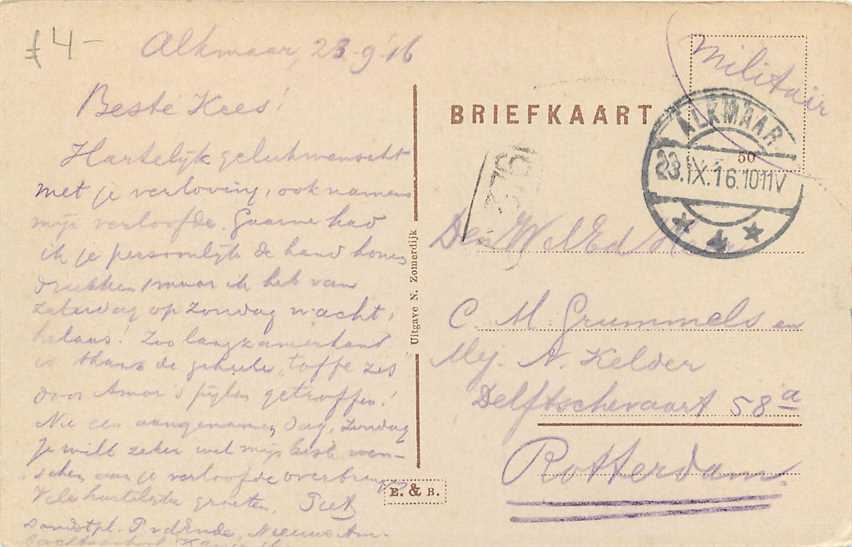 £ 4-
Alkmaar, 23-9-'16
Beste Kees!
Hartelijk gelukgewenscht
met je verloving, ook namens
mijn verloofde. Gaarne had
ik je persoonlijk de hand komen
drukken, maar ik heb van
Zaterdag op Zondag wacht,
helaas! Zoo langzamerhand
is thans de geheele "toffe zes"
door Amor's pijlen getroffen!
Nu een aangenamen dag, Zondag
Je wilt zeker wel mijn beste wen-
schen aan je verloofde overbrengen
Vele hartelijke groeten. Piet
P. vd Ende, Nieuwe
BRIEFKAART
Militair
ALKMAAR
23.IX.16.1011V
50
Den WelEd Heer
C. M. Grummels en
Mej. A. Kelder
Delftschevaart 58a
Rotterdam
Uitgave N. Zomerdijk
E. & B.